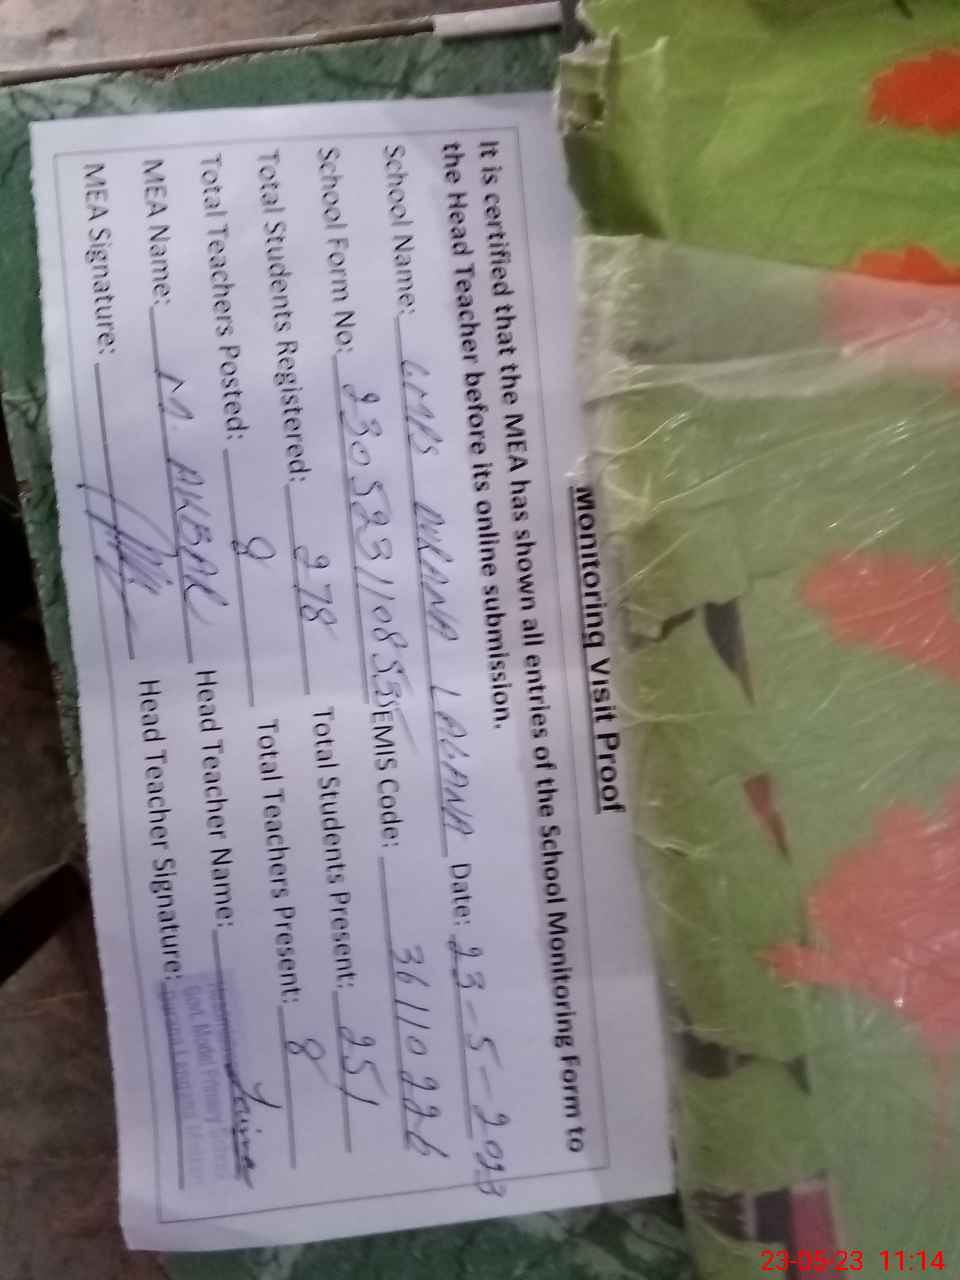 Monitoring Visit Proof
It is certified that the MEA has shown all entries of the School Monitoring Form to
the Head Teacher before its online submission.
School Name: GMPS DURANA LAGANA Date: 23-5-2023
School Form No: 230523110855 EMIS Code: 36110226
Total Students Registered: 278 Total Students Present: 251
Total Teachers Posted: 9 Total Teachers Present: 8
MEA Name: M. AKBAR Head Teacher Name:
MEA Signature: Head Teacher Signature:
Govt. Model Primary
23-05-23 11:14